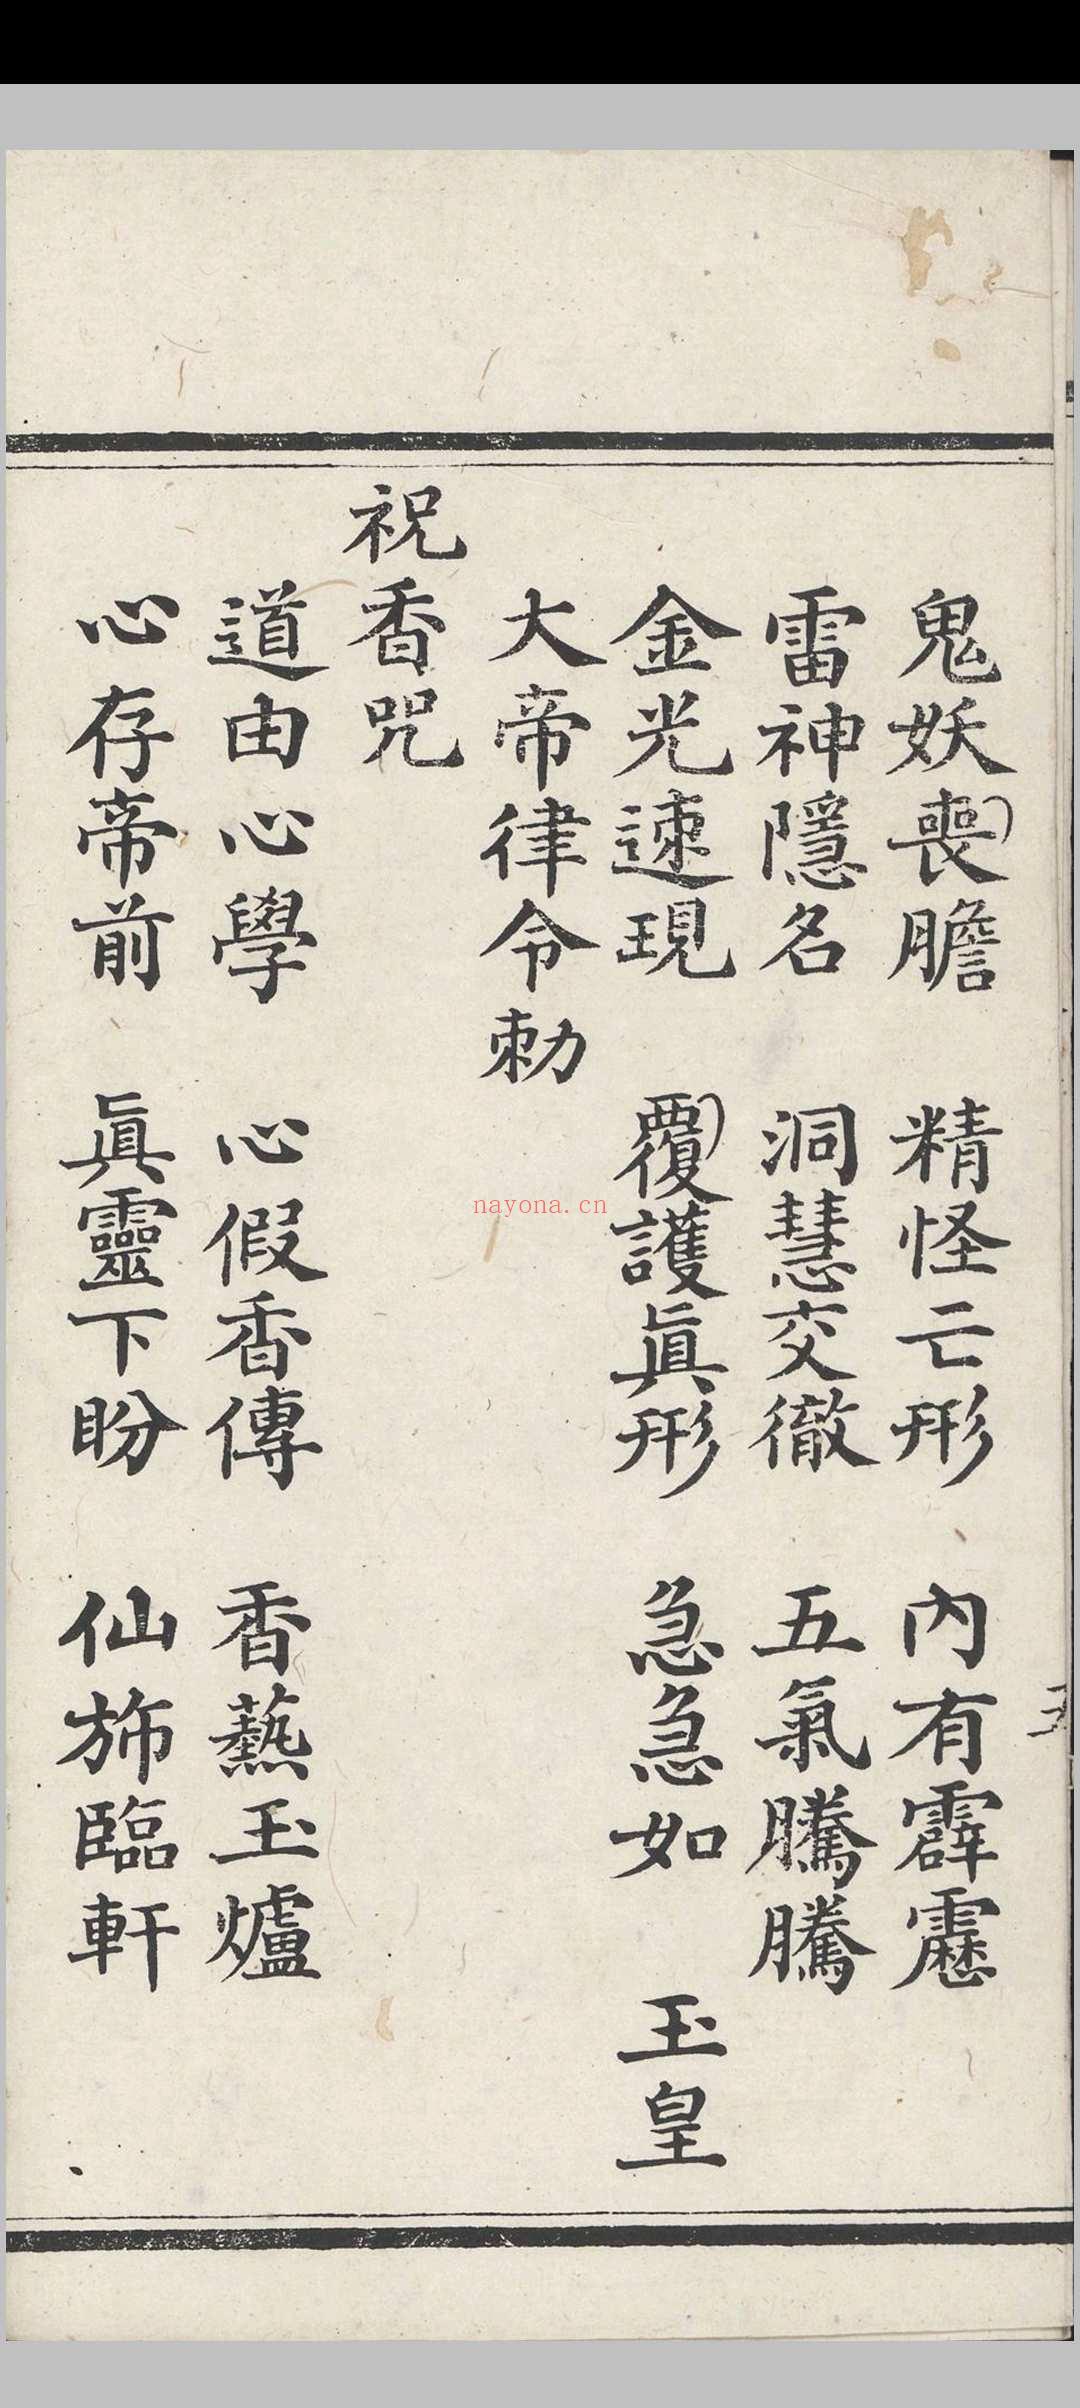 鬼妖喪膽 精怪亡形 內有霹靂
雷神隱名 洞慧交徹 五氣騰騰
金光速現 覆護眞形 急急如 玉皇
大帝律令勅
祝香咒
道由心學 心假香傳 香爇玉爐
心存帝前 眞靈下盼 仙斾臨軒
nayona.cn